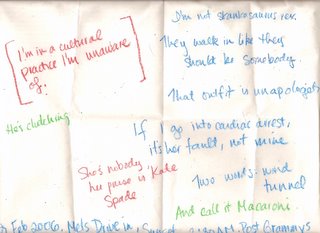 I'm not skankasaurus rex.
[I'm in a cultural
practice I'm unaware
of.]
They walk in like they
should be somebody.
That outfit is unapologetic
He's clutching
If I go into cardiac arrest,
it's her fault, not mine
She's nobody,
her purse is Kate
Spade
Two words: wind
tunnel
And call it Macaroni.
Feb 2006, Mels Drive in, 2:30AM Post Grammys